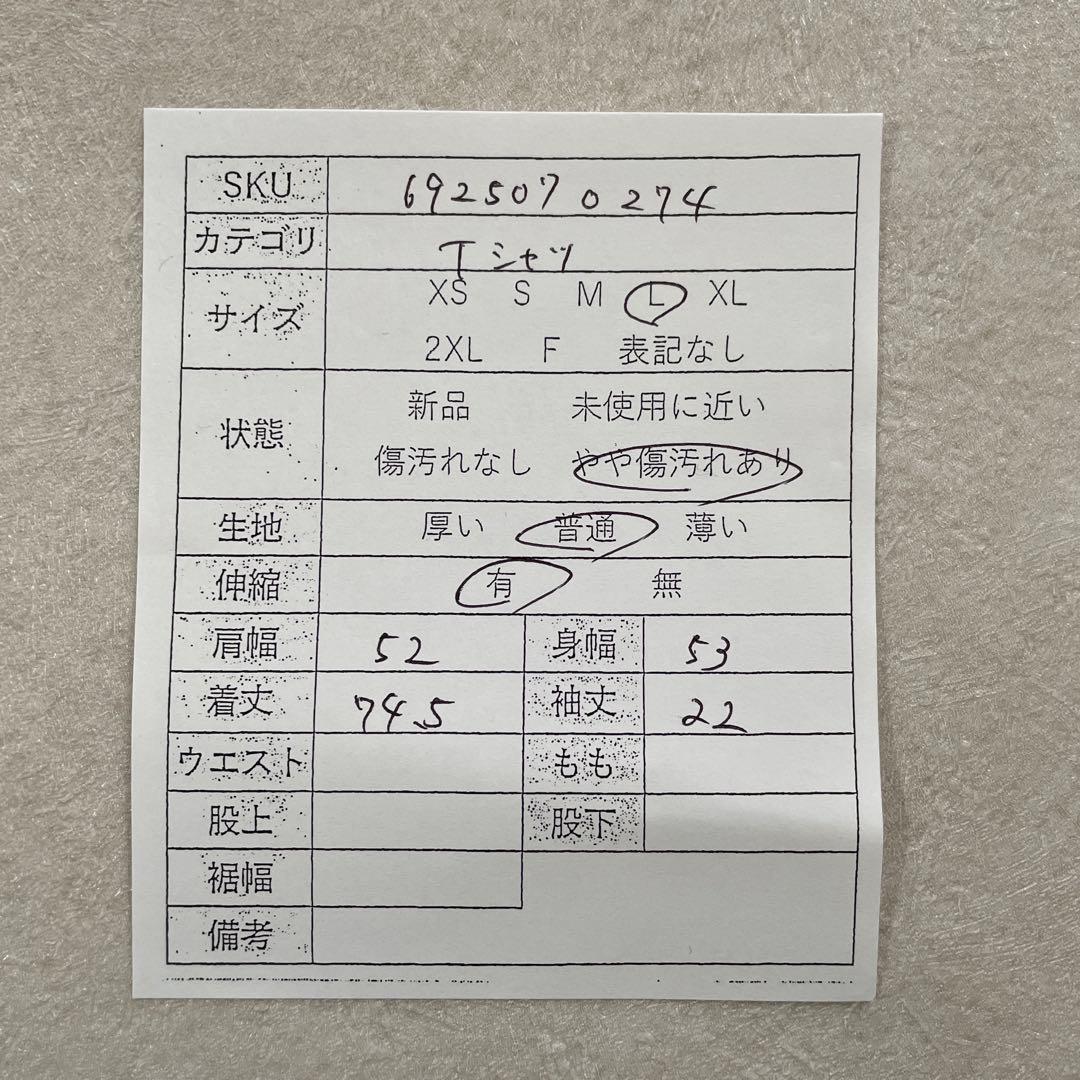 SKU 6925070274
カテゴリ Tシャツ
サイズ XS S M L XL
2XL F 表記なし
状態 新品 未使用に近い
傷汚れなし やや傷汚れあり
生地 厚い 普通 薄い
伸縮 有 無
肩幅 52 身幅 53
着丈 74.5 袖丈 22
ウエスト もも
股上 股下
裾幅
備考